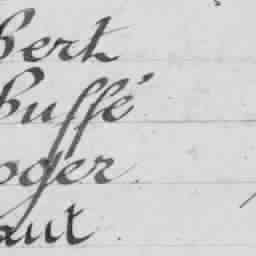 Bert
Buffé
oger
aut